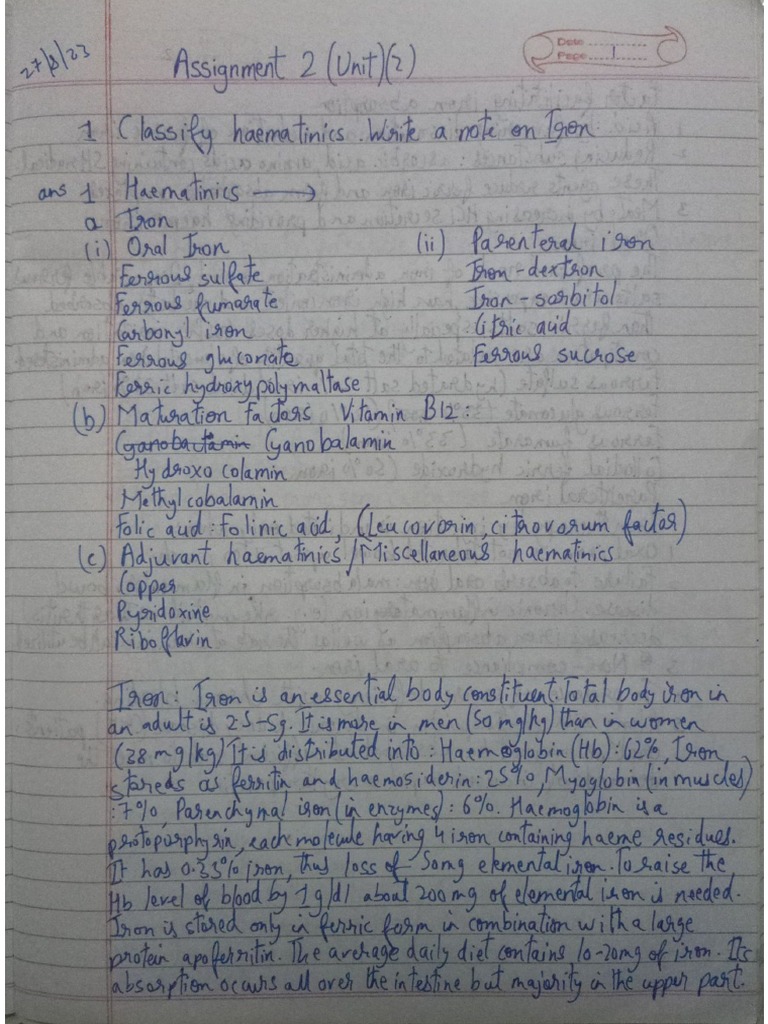 27/8/23
Assignment 2 (Unit)(2)
Date
Page 1
1 Classify haematinics. Write a note on Iron.
ans 1 Haematinics →
a Iron
(i) Oral Iron (ii) Parenteral iron
Ferrous sulfate Iron-dextron
Ferrous fumarate Iron-sorbitol
Carbonyl iron Citric acid
Ferrous gluconate Ferrous sucrose
Ferric hydroxy polymaltase
(b) Maturation factors Vitamin B12:
Cyanobalamin
Hydroxo colamin
Methylcobalamin
Folic acid: Folinic acid, (Leucovorin, citrovorum factor)
(c) Adjuvant haematinics/Miscellaneous haematinics
Copper
Pyridoxine
Riboflavin
Iron: Iron is an essential body constituent. Total body iron in
an adult is 25-5g. It is more in men (50 mg/kg) than in women
(38 mg/kg) It is distributed into: Haemoglobin (Hb): 62%, Iron
storeds as ferritin and haemosiderin: 25%, Myoglobin (in muscles)
: 7%, Parenchymal iron (in enzymes): 6%. Haemoglobin is a
protoporphyrin, each molecule having 4 iron containing haeme residues.
It has 0.33% iron, thus loss of 50mg elemental iron. To raise the
Hb level of blood by 1 g/dl about 200 mg of elemental iron is needed.
Iron is stored only in ferric form in combination with a large
protein apoferritin. The average daily diet contains 10-20mg of iron. Its
absorption occurs all over the intestine but majority in the upper part.